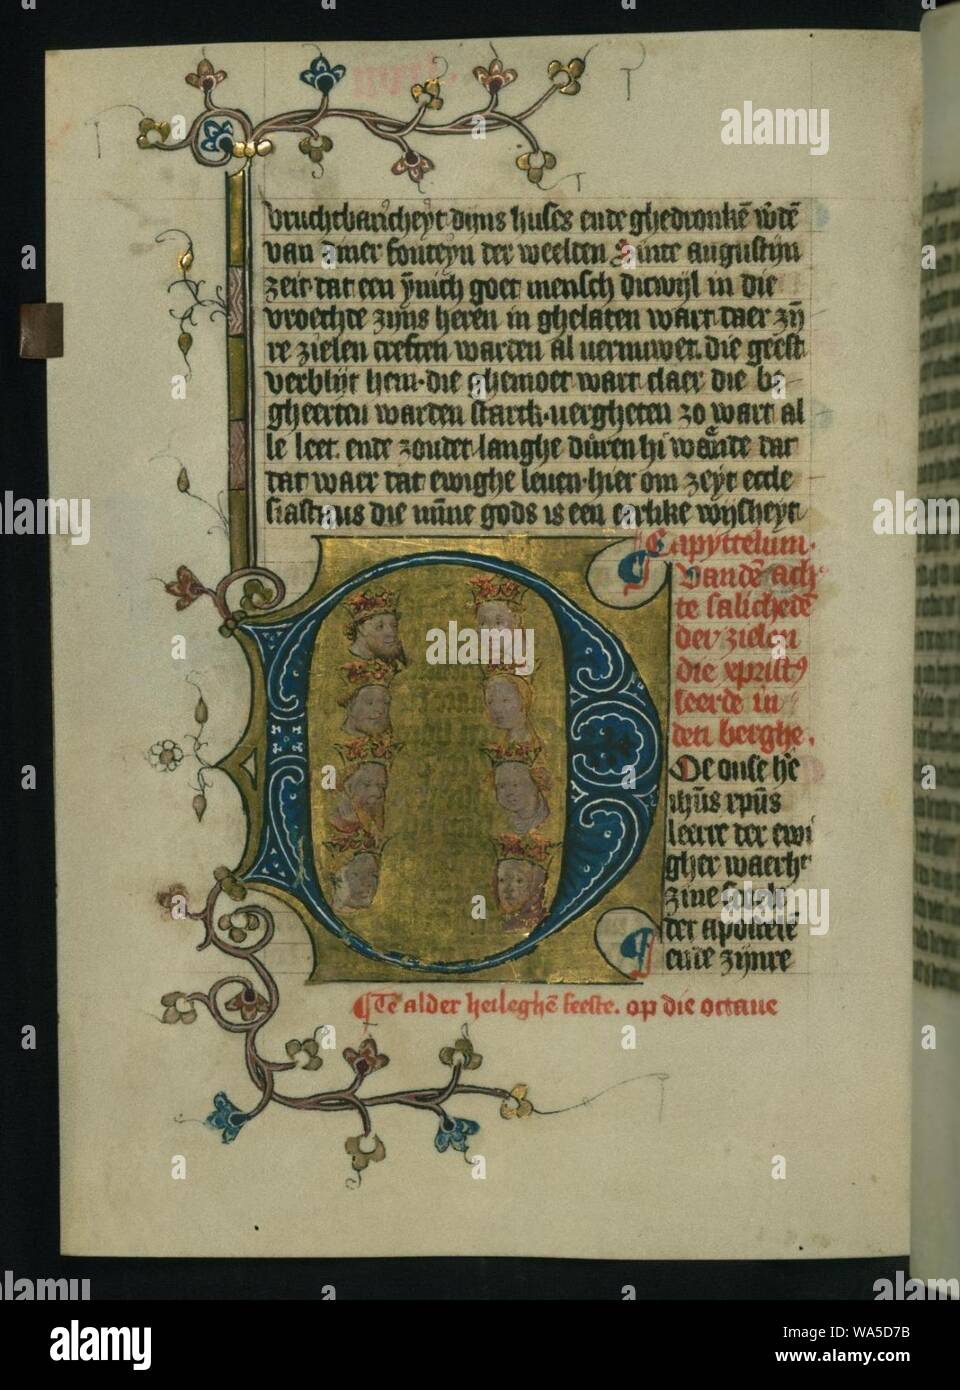 vruchtbaricheyt dijns huses ende ghedronkē w̄dē
van dijnre fonteyn der weelden Sinte augustijn
zeit dat een ȳnich goet mensch dicwijl in die
vroechde zijns heren in ghelaten wart daer zij̄
re zielen creften warden al vernuwet. die geest
verblijt hem. die ghemoet wart claer die be
gheerten warden starck. vergheten zo wart al
le leet. ende zonder langhe duren hi wāēde dat
dat waer dat ewighe leuen. hier om zeyt eccle
siasticus die mīne gods is een eerlike wijsheyt
Capyttelum.
Vandē ach
te salichedē
der zielen
die xpristꝯ
leerde in
den berghe.
Doe onse he
ihūs xpūs
leerre der ewi
gher waerhʳ
zine
der apostelē
ende zijnre
Te alder heileghē feeste. op die octaue
alamy
alamy
www.alamy.com
Image ID: WA5D7B